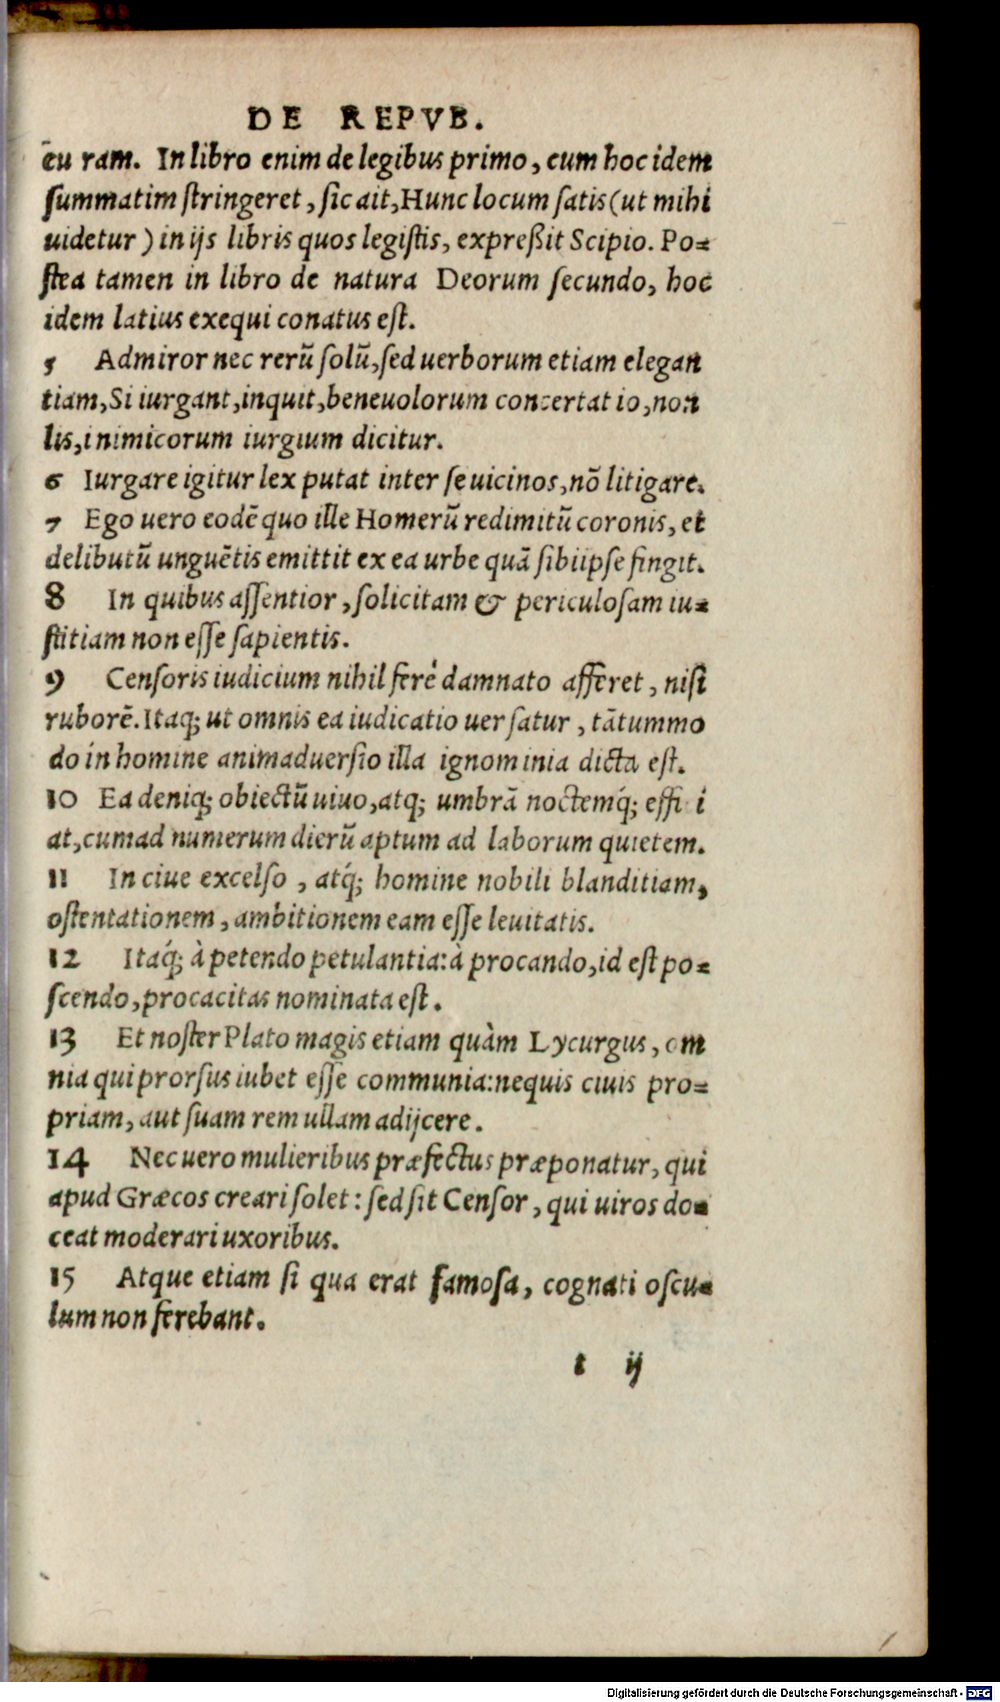 DE REPVB.
eu ram. In libro enim de legibus primo, cum hoc idem
summatim stringeret, sic ait, Hunc locum satis (ut mihi
uidetur) in ijs libris quos legistis, expreßit Scipio. Po=
stea tamen in libro de natura Deorum secundo, hoc
idem latius exequi conatus est.
5 Admiror nec rerū solū, sed uerborum etiam elegan
tiam, Si iurgant, inquit, beneuolorum concertatio, non
lis, inimicorum iurgium dicitur.
6 Iurgare igitur lex putat inter se uicinos, nō litigare.
7 Ego uero eodē quo ille Homerū redimitū coronis, et
delibutū unguētis emittit ex ea urbe quā sibi ipse fingit.
8 In quibus assentior, solicitam & periculosam iu=
stitiam non esse sapientis.
9 Censoris iudicium nihil ferè damnato affert, nisi
ruborē. Itaq; ut omnis ea iudicatio uersatur, tātummo
do in homine animaduersio illa ignominia dicta est.
10 Ea deniq; obiectū uiuo, atq; umbrā noctemq́; effi i
at, cum ad numerum dierū aptum ad laborum quietem.
11 In ciue excelso, atq́; homine nobili blanditiam,
ostentationem, ambitionem eam esse leuitatis.
12 Itaq́; à petendo petulantia: à procando, id est po=
scendo, procacitas nominata est.
13 Et noster Plato magis etiam quàm Lycurgus, om
nia qui prorsus iubet esse communia: nequis ciuis pro=
priam, aut suam rem ullam adijcere.
14 Nec uero mulieribus præfectus præponatur, qui
apud Græcos creari solet: sed sit Censor, qui uiros do=
ceat moderari uxoribus.
15 Atque etiam si qua erat famosa, cognati oscu=
lum non ferebant.
t ij
Digitalisierung gefördert durch die Deutsche Forschungsgemeinschaft - DFG